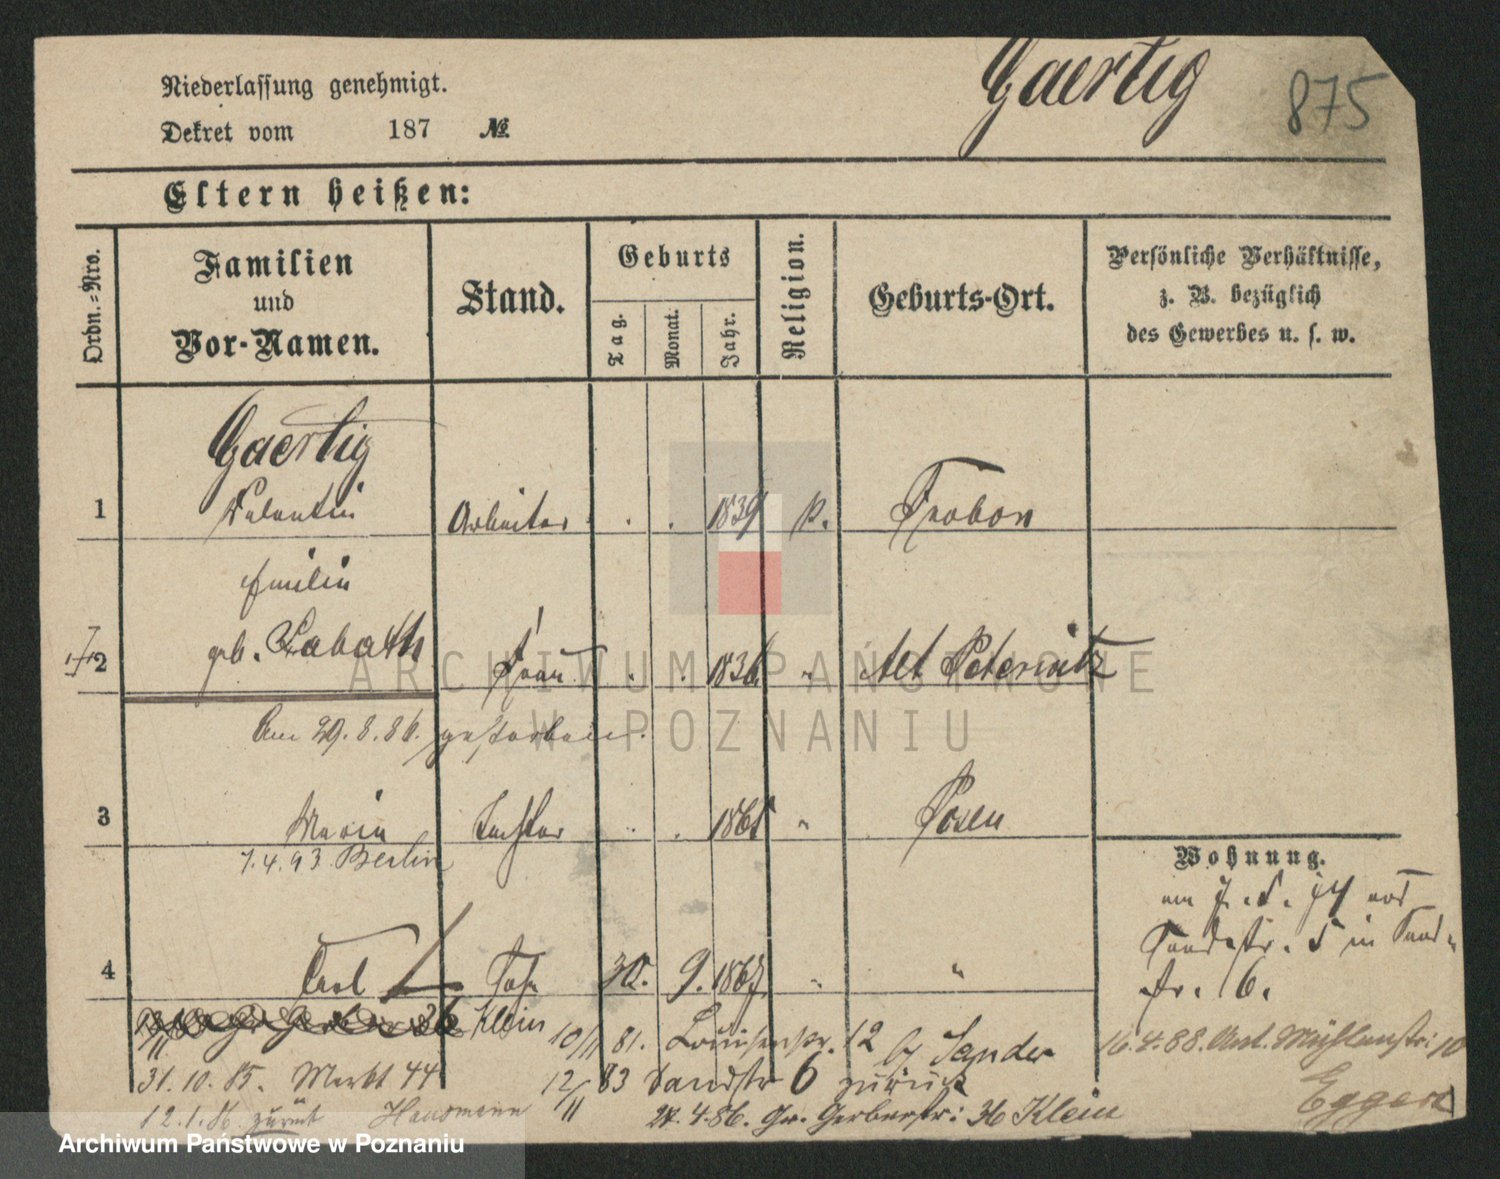 Niederlassung genehmigt.
Gaertig
875
Dekret vom 187 №
Eltern heißen:
Ordn.=Nro.
Familien
und
Vor-Namen.
Stand.
Geburts
Tag.
Monat.
Jahr.
Religion.
Geburts-Ort.
Persönliche Verhältnisse,
z. B. bezüglich
des Gewerbes u. s. w.
Gaertig
1 Valentin Arbeiter . . 1839 k.
Emilie
2 geb. Frau . . 1836 " Alt
Am 29.8.86. gestorben.
3 Maria Tochter . . 1865 " Posen
7.4.93 Berlin
Wohnung.
4 Carl Sohn 30. 9. 1867 " "
36 Klein
10/11 81. Louisenstr. 12 Sander
16.4.88. Mühlenstr: 10
31.10.85. Markt 44
12/11 83 Sandstr 6 zurück
12.1.86 zurück Hausmann
24.4.86. Gr. Gerberstr: 36 Klein
Eggert
ARCHIWUM PAŃSTWOWE
W POZNANIU
Archiwum Państwowe w Poznaniu